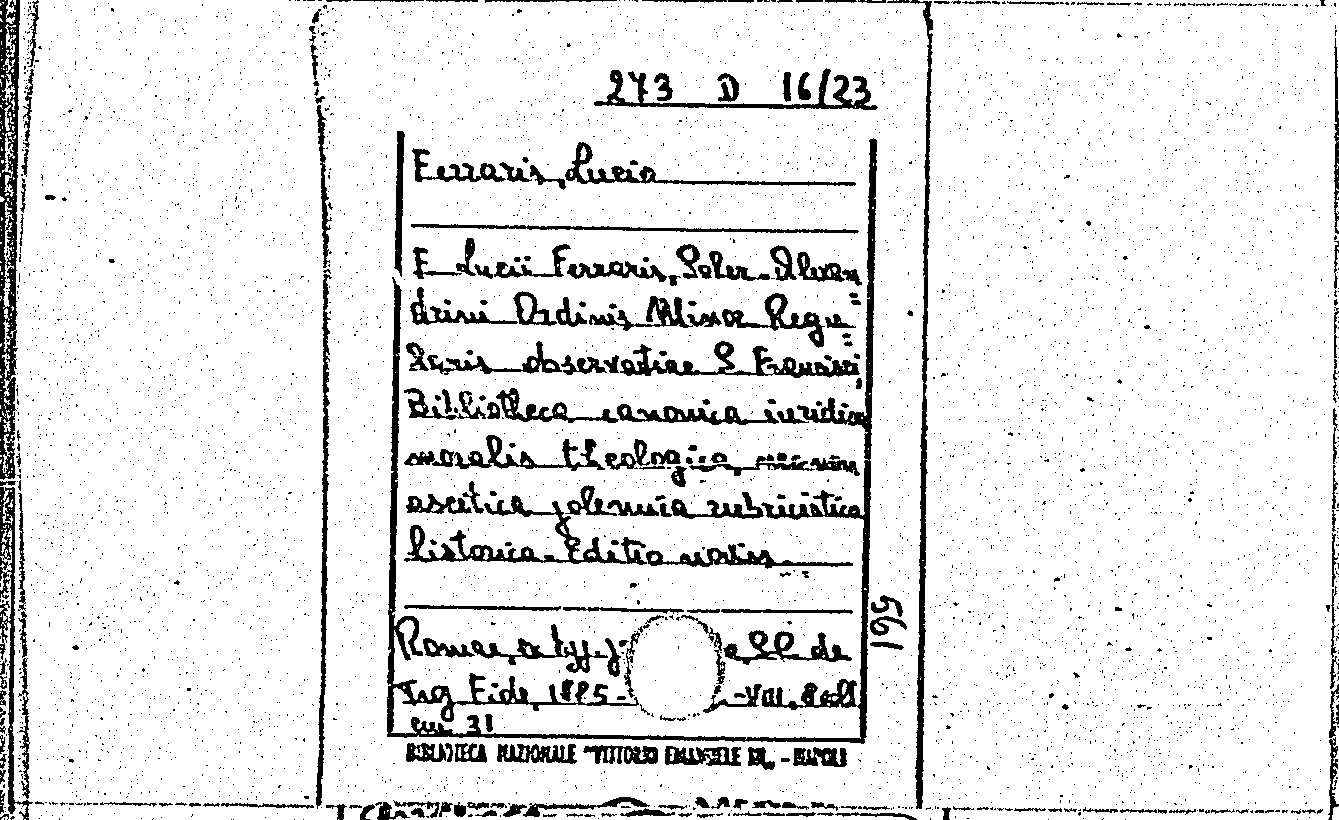 273 D 16/23
Ferraris, Lucio
F. Lucii Ferraris, Soler. Alexan=
drini Ordinis Minor Regu=
laris observatiae S. Francisci,
Bibliotheca canonica iuridica
moralis theologica,
ascetica polemica rubricistica
historica. Editio
561
Romae, ex typ. de
Fide, 1885- -Vol. 8
cm 31
BIBLIOTECA NAZIONALE "VITTORIO EMANUELE III" - NAPOLI